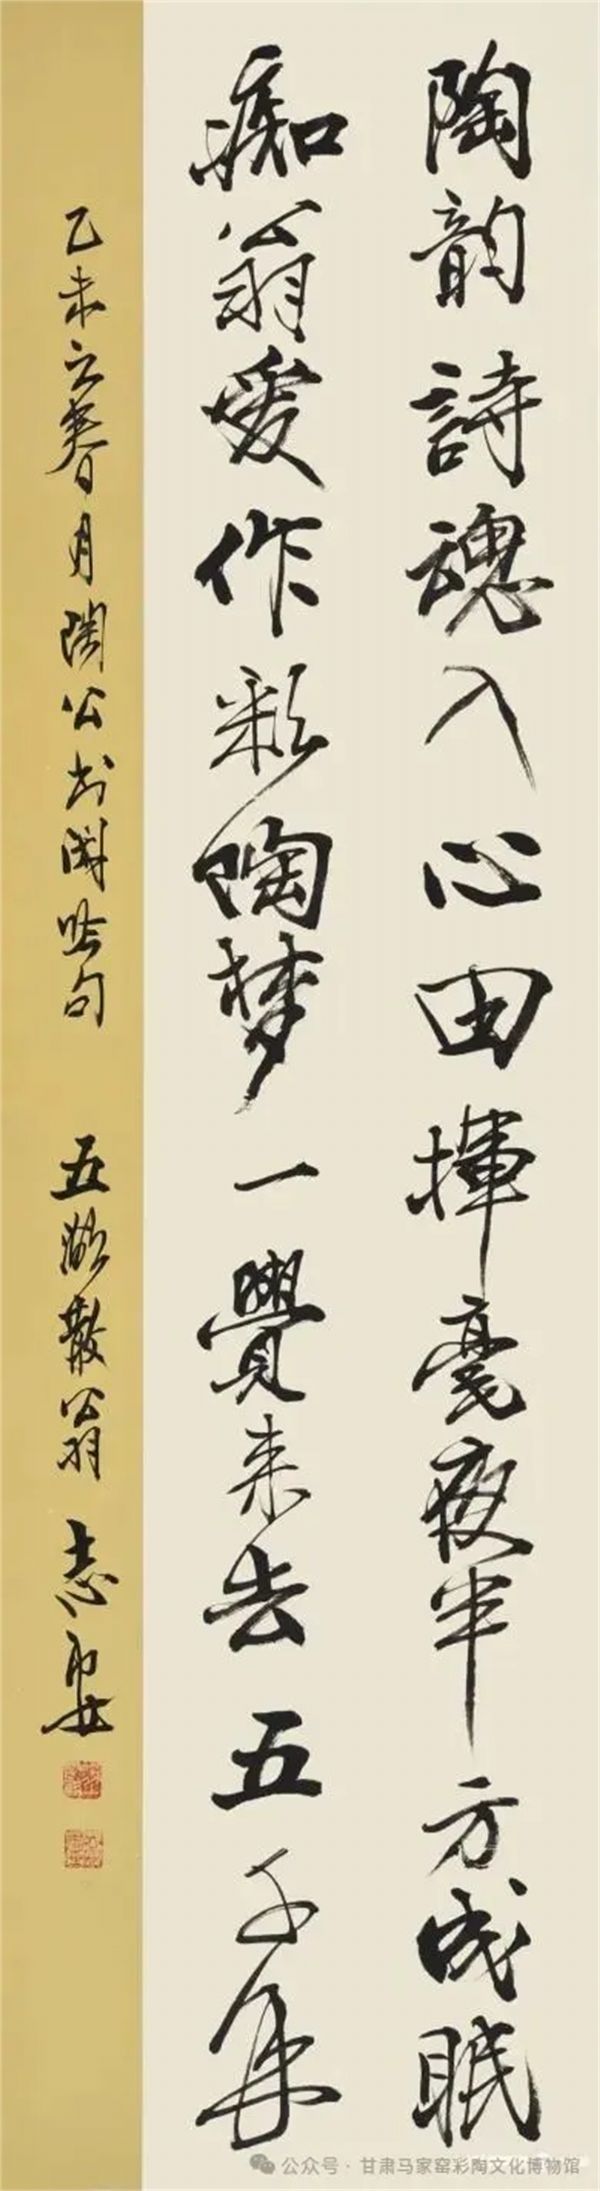 陶韵詩魂入心田揮毫夜半方成眠
痴翁爱作彩陶梦一覺来去五千年
乙未立春月陶公书渊吟句 五湖散翁志军
公众号·甘肃马家窑彩陶文化博物馆